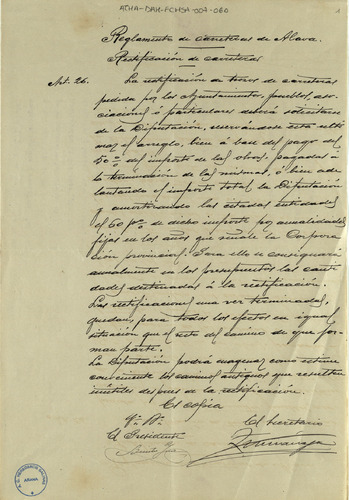 ATHA-DAH-FCHSA-007-060
1
Reglamento de carreteras de Alava.
Rectificación de carreteras
Art. 26. La rectificación de trozos de carreteras
pedida por los Ayuntamientos, pueblos, aso-
ciaciones ó particulares deberá solicitarse
de la Diputación, reservándose esta últi-
ma el arreglo, bien á base del pago del
50 % del importe de las obras, pagadas á
la terminación de las mismas, ó bien ade-
lantando el importe total la Diputación
y amortizando las citadas entidades
el 60 p% de dicho importe por anualidades
fijas en los años que señale la Corpora-
ción provincial. Para ello se consignará
anualmente en los presupuestos las canti-
dades destinadas á la rectificación.
Las rectificaciones una vez terminadas,
quedan, para todos los efectos en igual
situación que el resto del camino de que for-
man parte.
La Diputación podrá enagenar como estime
conveniente los caminos antiguos que resulten
inútiles después de la rectificación.
Es copia
Vº Bº
El Presidente
El Secretario